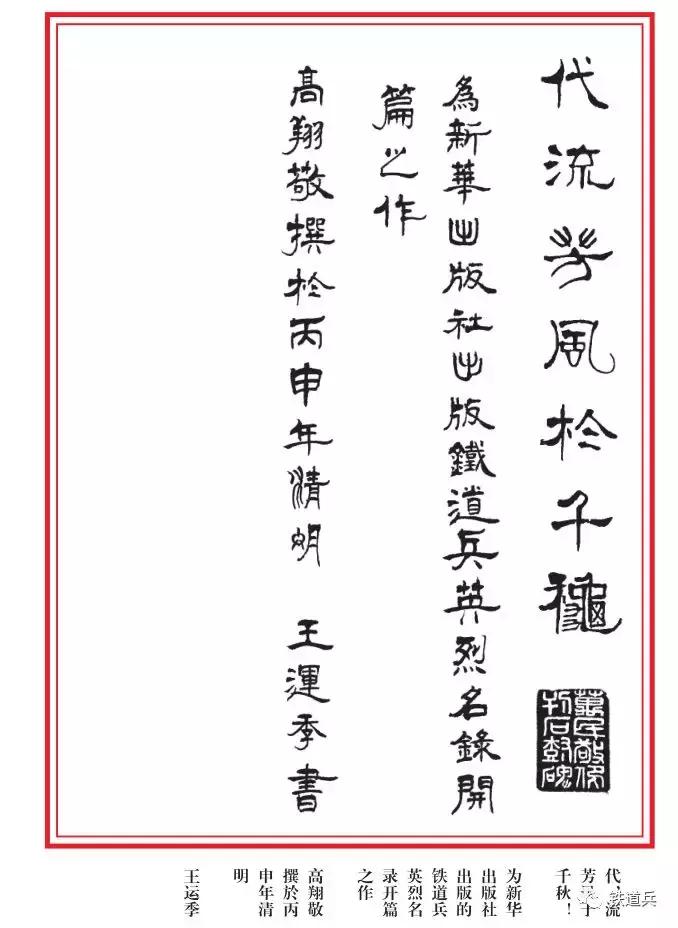 代流芳風於千龝
為新華出版社出版鐵道兵英烈名錄開
篇之作
高翔敬撰於丙申年清明 王運季書
代 流
芳 于
千秋！
为新华
出版社
出版的
铁道兵
英烈名
录开篇
之作
高翔敬
撰於丙
申年清
明
王运季
铁道兵